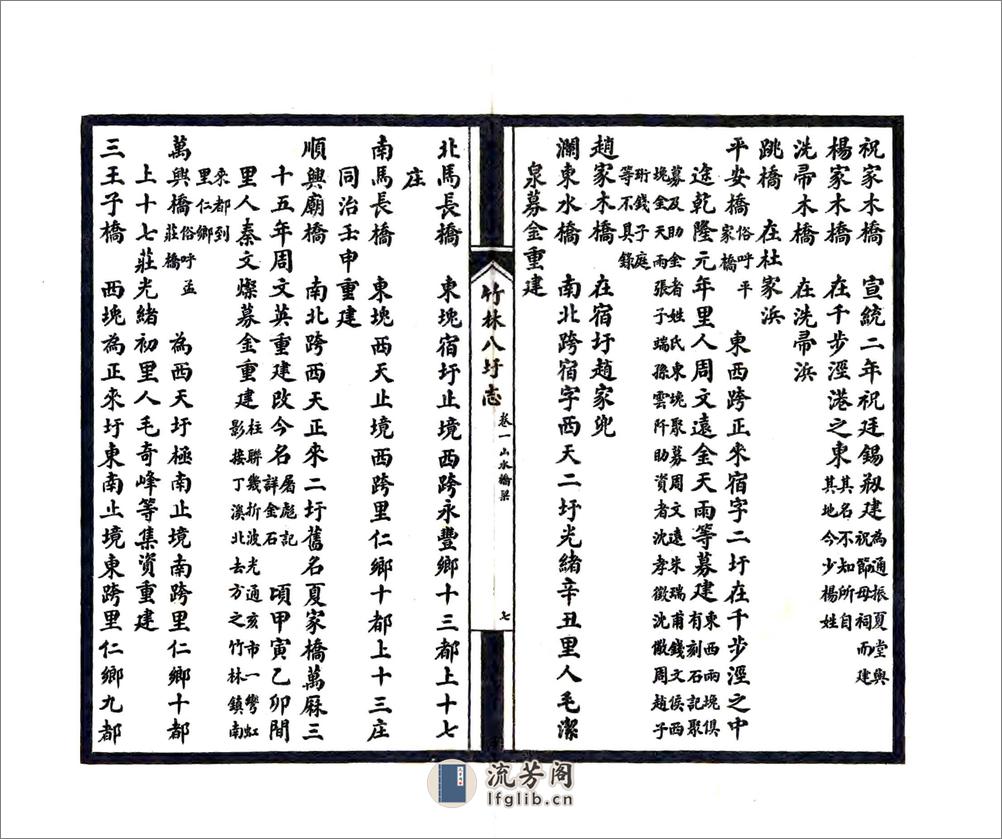 祝家木橋　宣統二年祝廷錫剏建為通振夏堂與祝節母祠而建
楊家木橋　在千步涇港之東其名不知所自其地今少楊姓
洗帚木橋　在洗帚浜
跳橋　在杜家浜
平安橋俗呼平家橋　東西跨正來宿字二圩在千步涇之中
途乾隆元年里人周文遠金天雨等募建東西兩堍俱有刻石記聚
募及助金者姓氏東堍聚募周文遠朱瑞甫錢文侯西堍金天雨張子端孫雲阡助資者沈孝徵沈徵周趙子
珩錢子庭等不具錄
趙家木橋　在宿圩趙家兜
瀾東水橋　南北跨宿字西天二圩光緒辛丑里人毛潔
泉募金重建
竹林八圩志　卷一山水橋梁　七
北馬長橋　東堍宿圩止境西跨永豐鄉十三都上十七
庄
南馬長橋　東堍西天止境西跨里仁鄉十都上十三庄
同治壬申重建
順興廟橋　南北跨西天正來二圩舊名夏家橋萬厤三
十五年周文英重建改今名屠彪記詳金石　頃甲寅乙卯間
里人秦文燦募金重建柱聯幾折波光通亥市一彎虹影接丁溪北去方之竹林鎮南
來都到里仁鄉
萬興橋俗呼孟莊橋　為西天圩極南止境南跨里仁鄉十都
上十七莊光緒初里人毛奇峰等集資重建
三王子橋　西堍為正來圩東南止境東跨里仁鄉九都
流芳阁
lfglib.cn